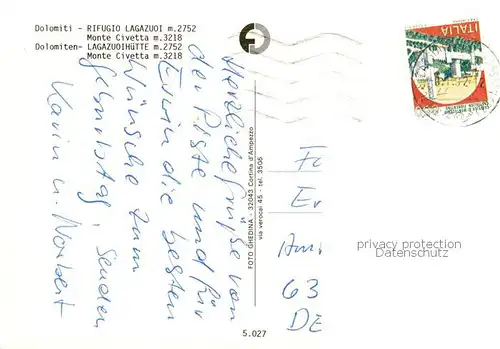 Dolomiti - RIFUGIO LAGAZUOI m.2752
Monte Civetta m.3218
Dolomiten- LAGAZUOIHÜTTE m.2752
Monte Civetta m.3218
Herzliche Grüße von
der Piste und für
Erwin die besten
Wünsche zum
Geburtstag, senden
Karin u. Norbert
FOTO GHEDINA - 32043 Cortina d'Ampezzo
via verocai 45 - tel. 3506
ITALIA
63
DE
privacy protection
Datenschutz
5.027